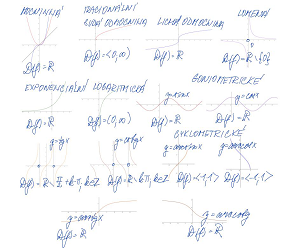 MOCNINNÁ RACIONÁLNÍ LOMENÁ
SUDÁ ODMOCNINA LICHÁ ODMOCNINA
D(f)=R D(f)=⟨0,∞) D(f)=R D(f)=R\{0}
EXPONENCIÁLNÍ LOGARITMICKÁ GONIOMETRICKÉ
y=sinx y=cosx
D(f)=R D(f)=(0,∞) D(f)=R D(f)=R
y=tgx y=cotgx CYKLOMETRICKÉ
y=arcsinx y=arccosx
D(f)=R\ π/2+kπ, k∈Z D(f)=R\ kπ, k∈Z D(f)=⟨-1,1⟩ D(f)=⟨-1,1⟩
y=arctgx y=arccotgx
D(f)=R D(f)=R